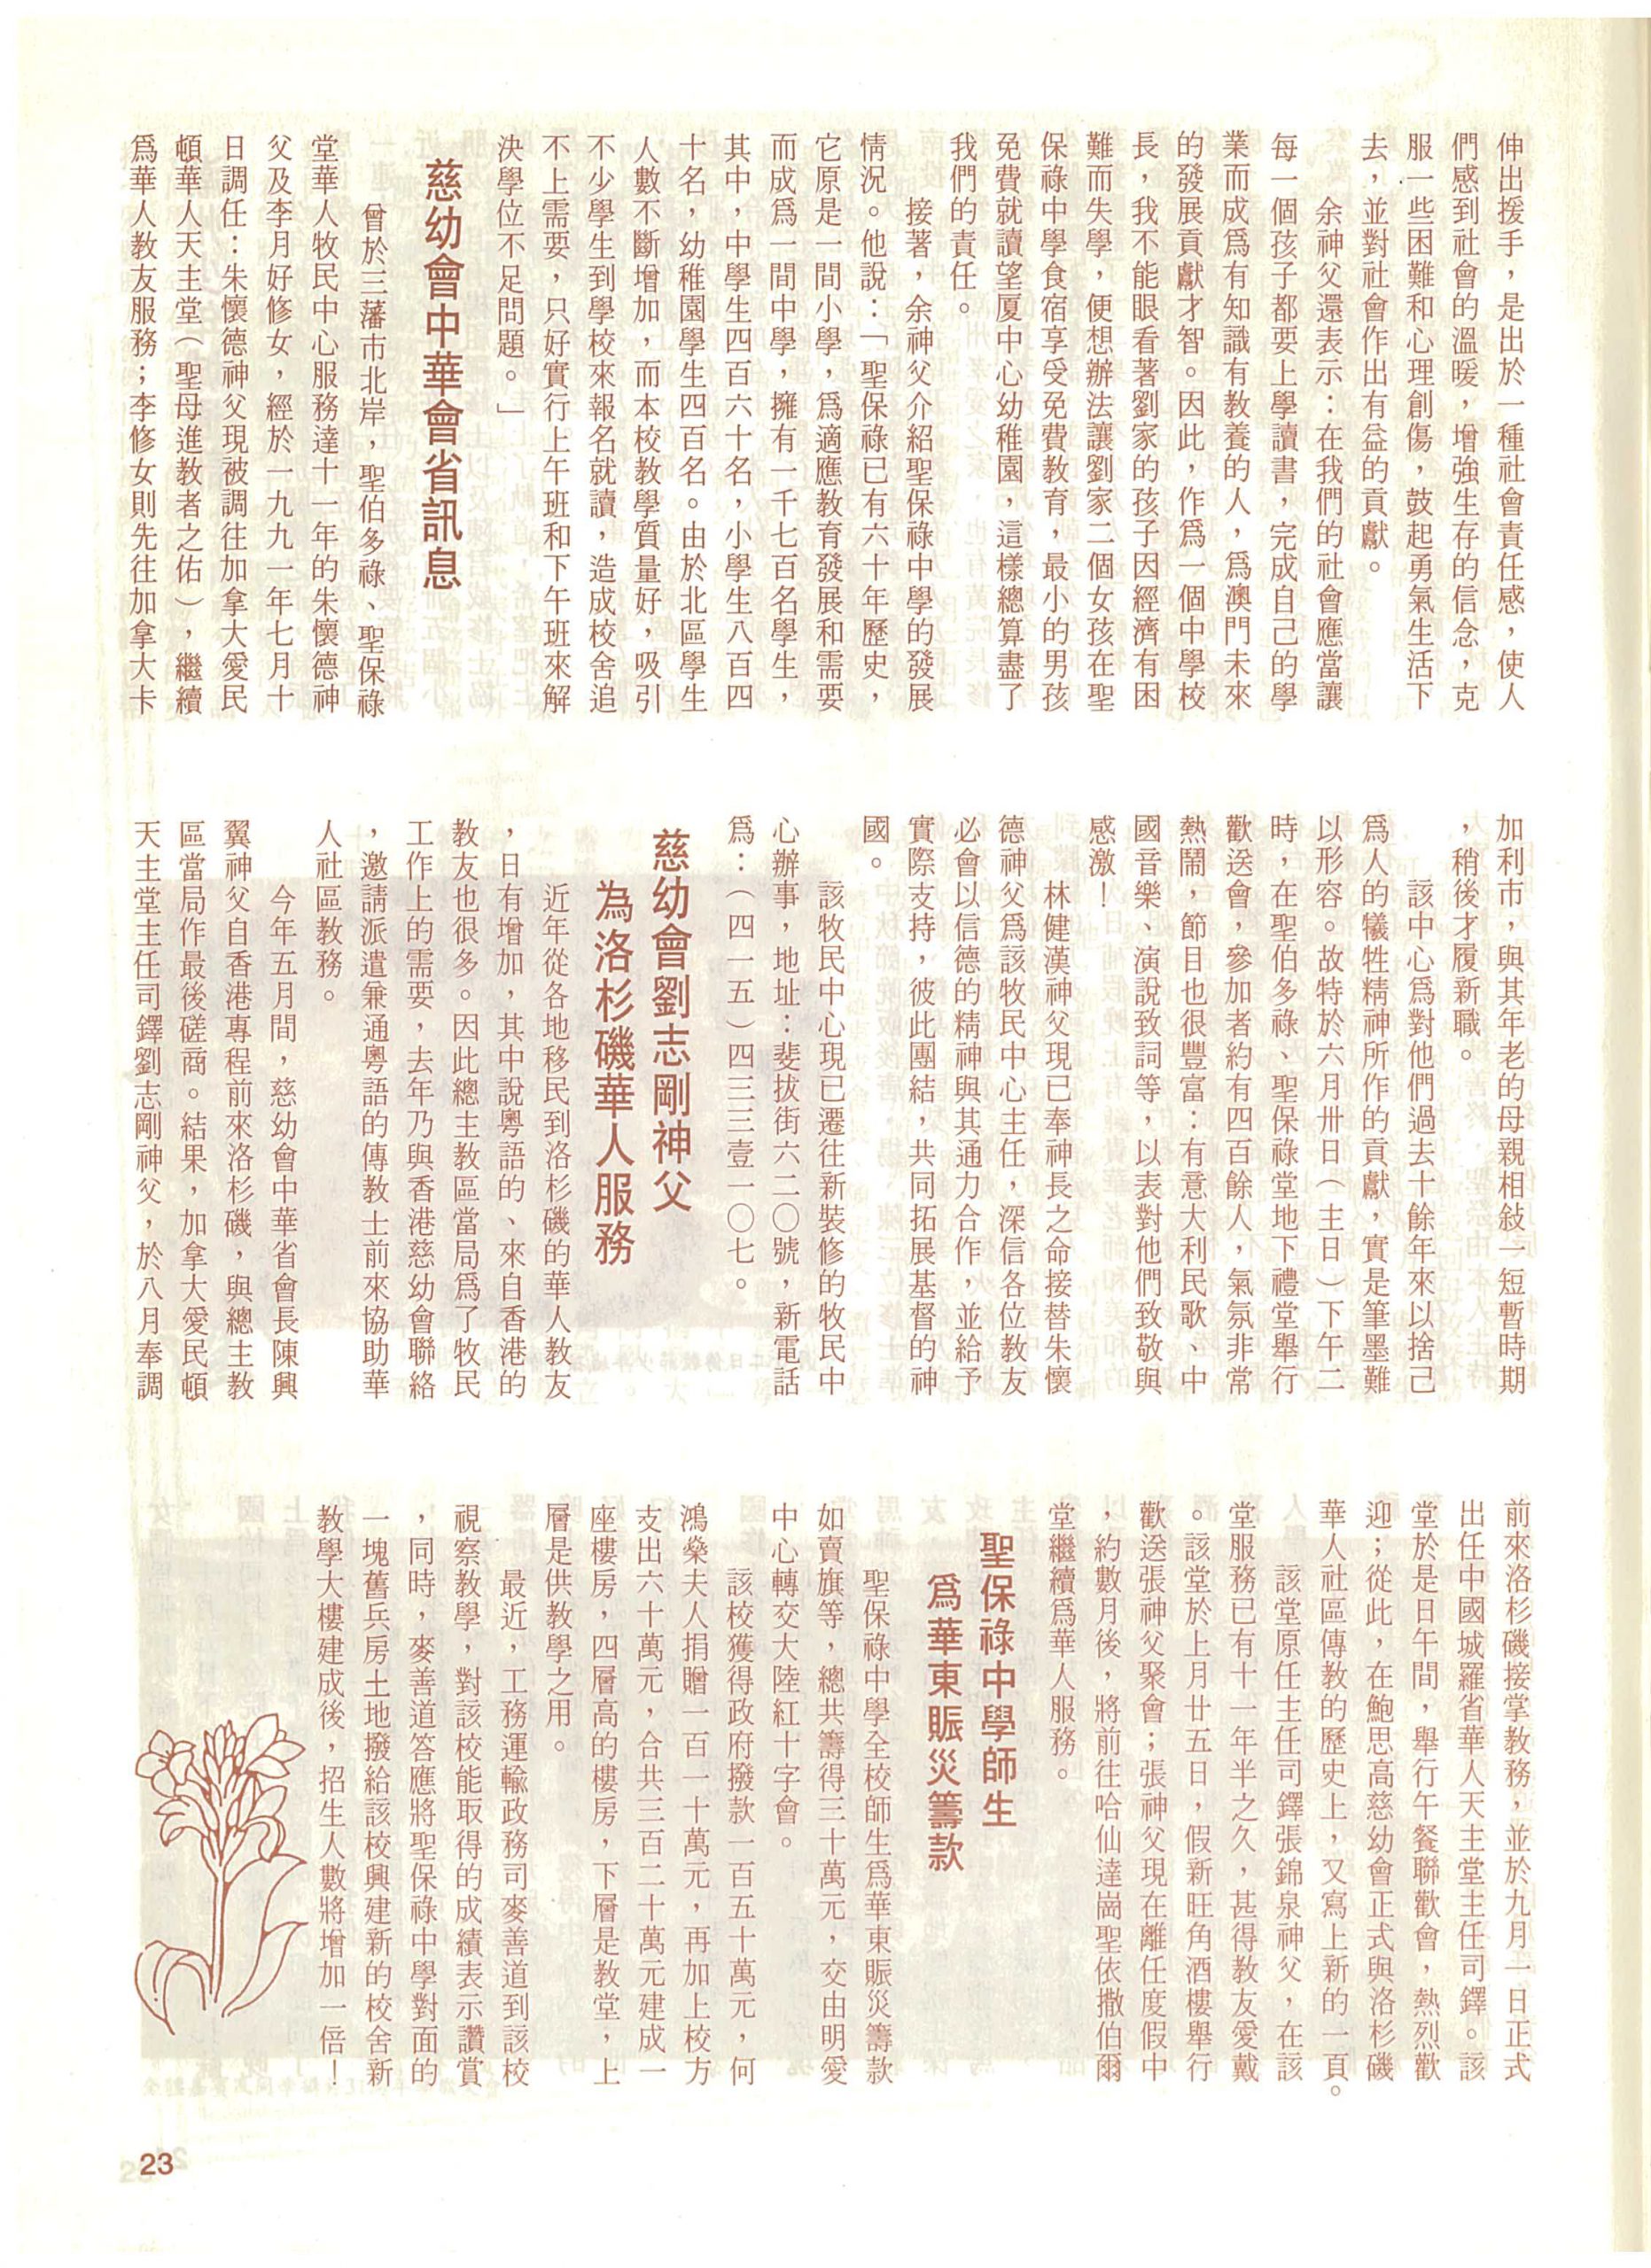 伸出援手，是出於一種社會責任感，使人
們感到社會的溫暖，增強生存的信念，克
服一些困難和心理創傷，鼓起勇氣生活下
去，並對社會作出有益的貢獻。
余神父還表示：在我們的社會應當讓
每一個孩子都要上學讀書，完成自己的學
業而成爲有知識有教養的人，爲澳門未來
的發展貢獻才智。因此，作爲一個中學校
長，我不能眼看著劉家的孩子因經濟有困
難而失學，便想辦法讓劉家二個女孩在聖
保祿中學食宿享受免費教育，最小的男孩
免費就讀望厦中心幼稚園，這樣總算盡了
我們的責任。
接著，余神父介紹聖保祿中學的發展
情況。他說：「聖保祿已有六十年歷史，
它原是一間小學，爲適應教育發展和需要
而成爲一間中學，擁有一千七百名學生，
其中，中學生四百六十名，小學生八百四
十名，幼稚園學生四百名。由於北區學生
人數不斷增加，而本校教學質量好，吸引
不少學生到學校來報名就讀，造成校舍追
不上需要，只好實行上午班和下午班來解
決學位不足問題。」
慈幼會中華會省訊息
曾於三藩市北岸，聖伯多祿、聖保祿
堂華人牧民中心服務達十一年的朱懷德神
父及李月好修女，經於一九九一年七月十
日調任：朱懷德神父現被調往加拿大愛民
頓華人天主堂（聖母進教者之佑），繼續
爲華人教友服務；李修女則先往加拿大卡
加利市，與其年老的母親相敍一短暫時期
，稍後才履新職。
該中心爲對他們過去十餘年來以捨己
爲人的犧牲精神所作的貢獻，實是筆墨難
以形容。故特於六月卅日（主日）下午二
時，在聖伯多祿、聖保祿堂地下禮堂舉行
歡送會，參加者約有四百餘人，氣氛非常
熱鬧，節目也很豐富：有意大利民歌、中
國音樂、演說致詞等，以表對他們致敬與
感激！
林健漢神父現已奉神長之命接替朱懷
德神父爲該牧民中心主任，深信各位教友
必會以信德的精神與其通力合作，並給予
實際支持，彼此團結，共同拓展基督的神
國。
該牧民中心現已遷往新裝修的牧民中
心辦事，地址：斐拔街六二〇號，新電話
爲：（四一五）四三三壹一〇七。
慈幼會劉志剛神父
為洛杉磯華人服務
近年從各地移民到洛杉磯的華人教友
，日有增加，其中說粵語的、來自香港的
教友也很多。因此總主教區當局爲了牧民
工作上的需要，去年乃與香港慈幼會聯絡
，邀請派遣兼通粵語的傳教士前來協助華
人社區教務。
今年五月間，慈幼會中華省會長陳興
翼神父自香港專程前來洛杉磯，與總主教
區當局作最後磋商。結果，加拿大愛民頓
天主堂主任司鐸劉志剛神父，於八月奉調
前來洛杉磯接掌教務，並於九月一日正式
出任中國城羅省華人天主堂主任司鐸。該
堂於是日午間，舉行午餐聯歡會，熱烈歡
迎；從此，在鮑思高慈幼會正式與洛杉磯
華人社區傳教的歷史上，又寫上新的一頁。
該堂原任主任司鐸張錦泉神父，在該
堂服務已有十一年半之久，甚得教友愛戴
。該堂於上月廿五日，假新旺角酒樓舉行
歡送張神父聚會；張神父現在離任度假中
，約數月後，將前往哈仙達崗聖依撒伯爾
堂繼續爲華人服務。
聖保祿中學師生
爲華東賑災籌款
聖保祿中學全校師生爲華東賑災籌款
如賣旗等，總共籌得三十萬元，交由明愛
中心轉交大陸紅十字會。
該校獲得政府撥款一百五十萬元，何
鴻燊夫人捐贈一百一十萬元，再加上校方
支出六十萬元，合共三百二十萬元建成一
座樓房，四層高的樓房，下層是教堂，上
層是供教學之用。
最近，工務運輸政務司麥善道到該校
視察教學，對該校能取得的成績表示讚賞
，同時，麥善道答應將聖保祿中學對面的
一塊舊兵房土地撥給該校興建新的校舍新
教學大樓建成後，招生人數將增加一倍！
23